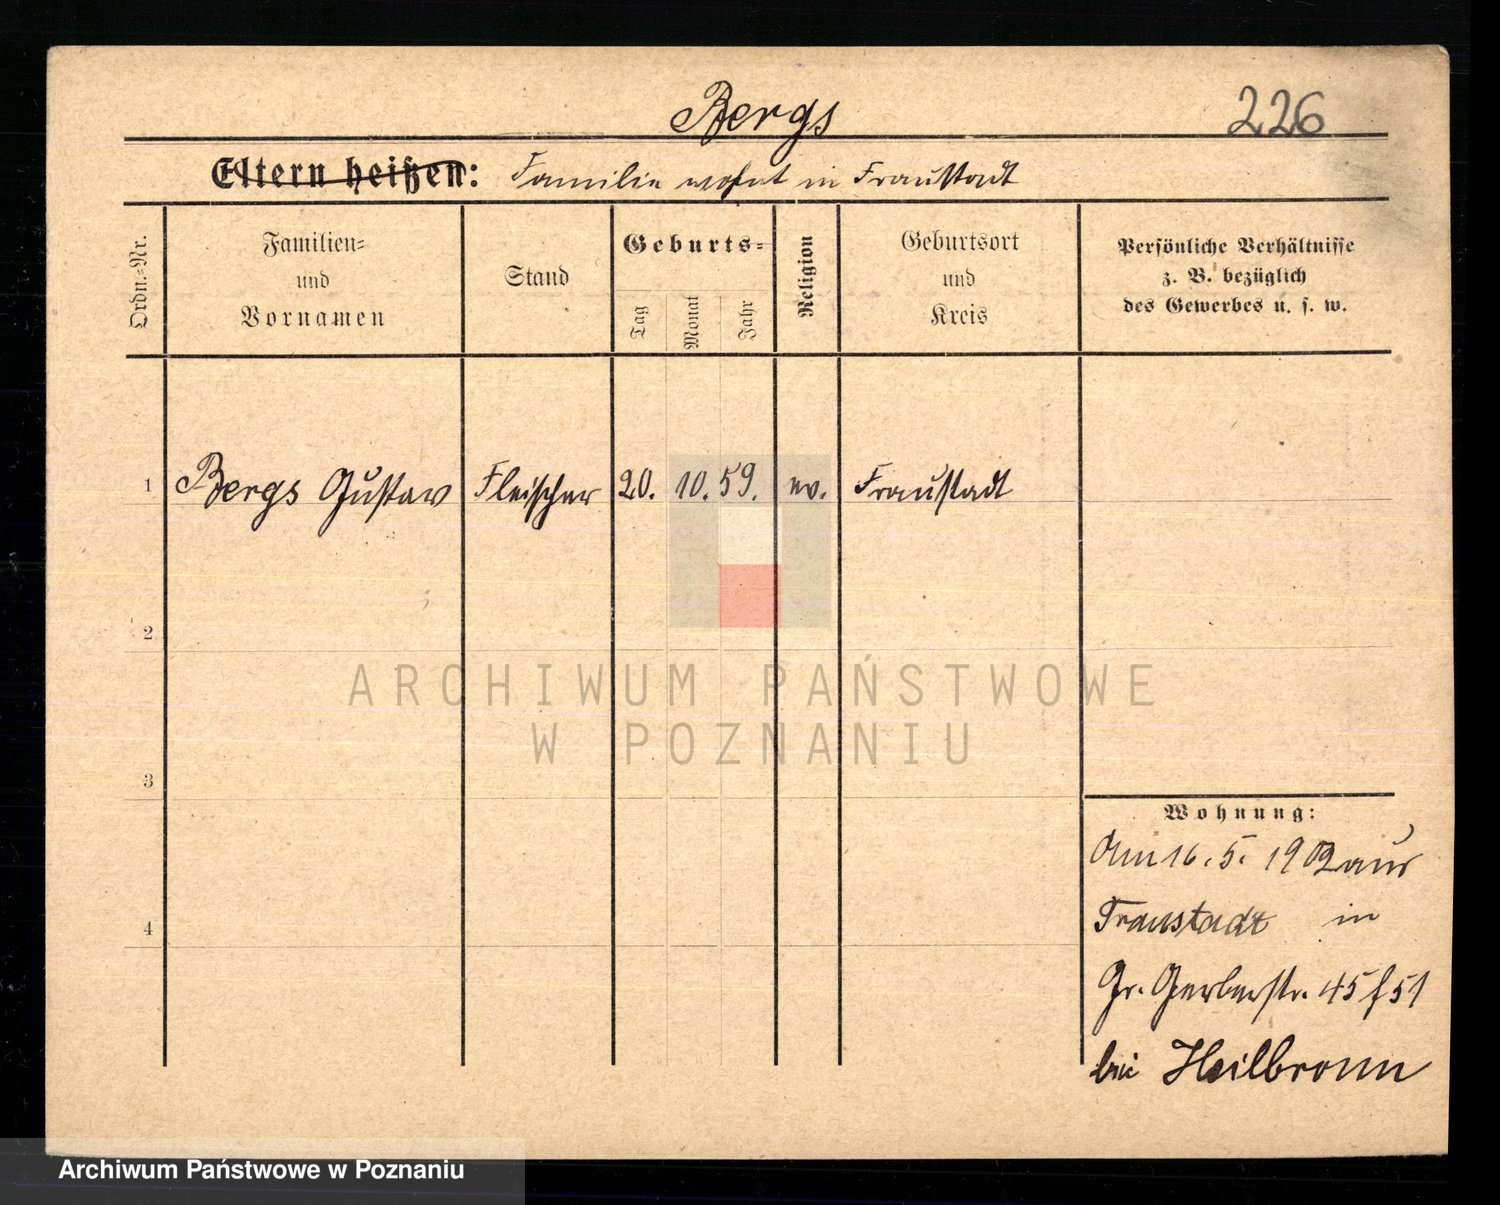 Bergs 226
Eltern heißen: Familie wohnt in Fraustadt
Ordn.=Nr.
Familien=
und
Vornamen
Stand
Geburts=
Tag
Monat
Jahr
Religion
Geburtsort
und
Kreis
Persönliche Verhältnisse
z. B. bezüglich
des Gewerbes u. s. w.
1 Bergs Gustav Fleischer 20. 10. 59. ev. Fraustadt
2
3
4
Wohnung:
Am 16. 5. 1902 aus
Fraustadt in
Gr. Gerberstr. 45/51
bei Heilbronn
ARCHIWUM PAŃSTWOWE
W POZNANIU
Archiwum Państwowe w Poznaniu